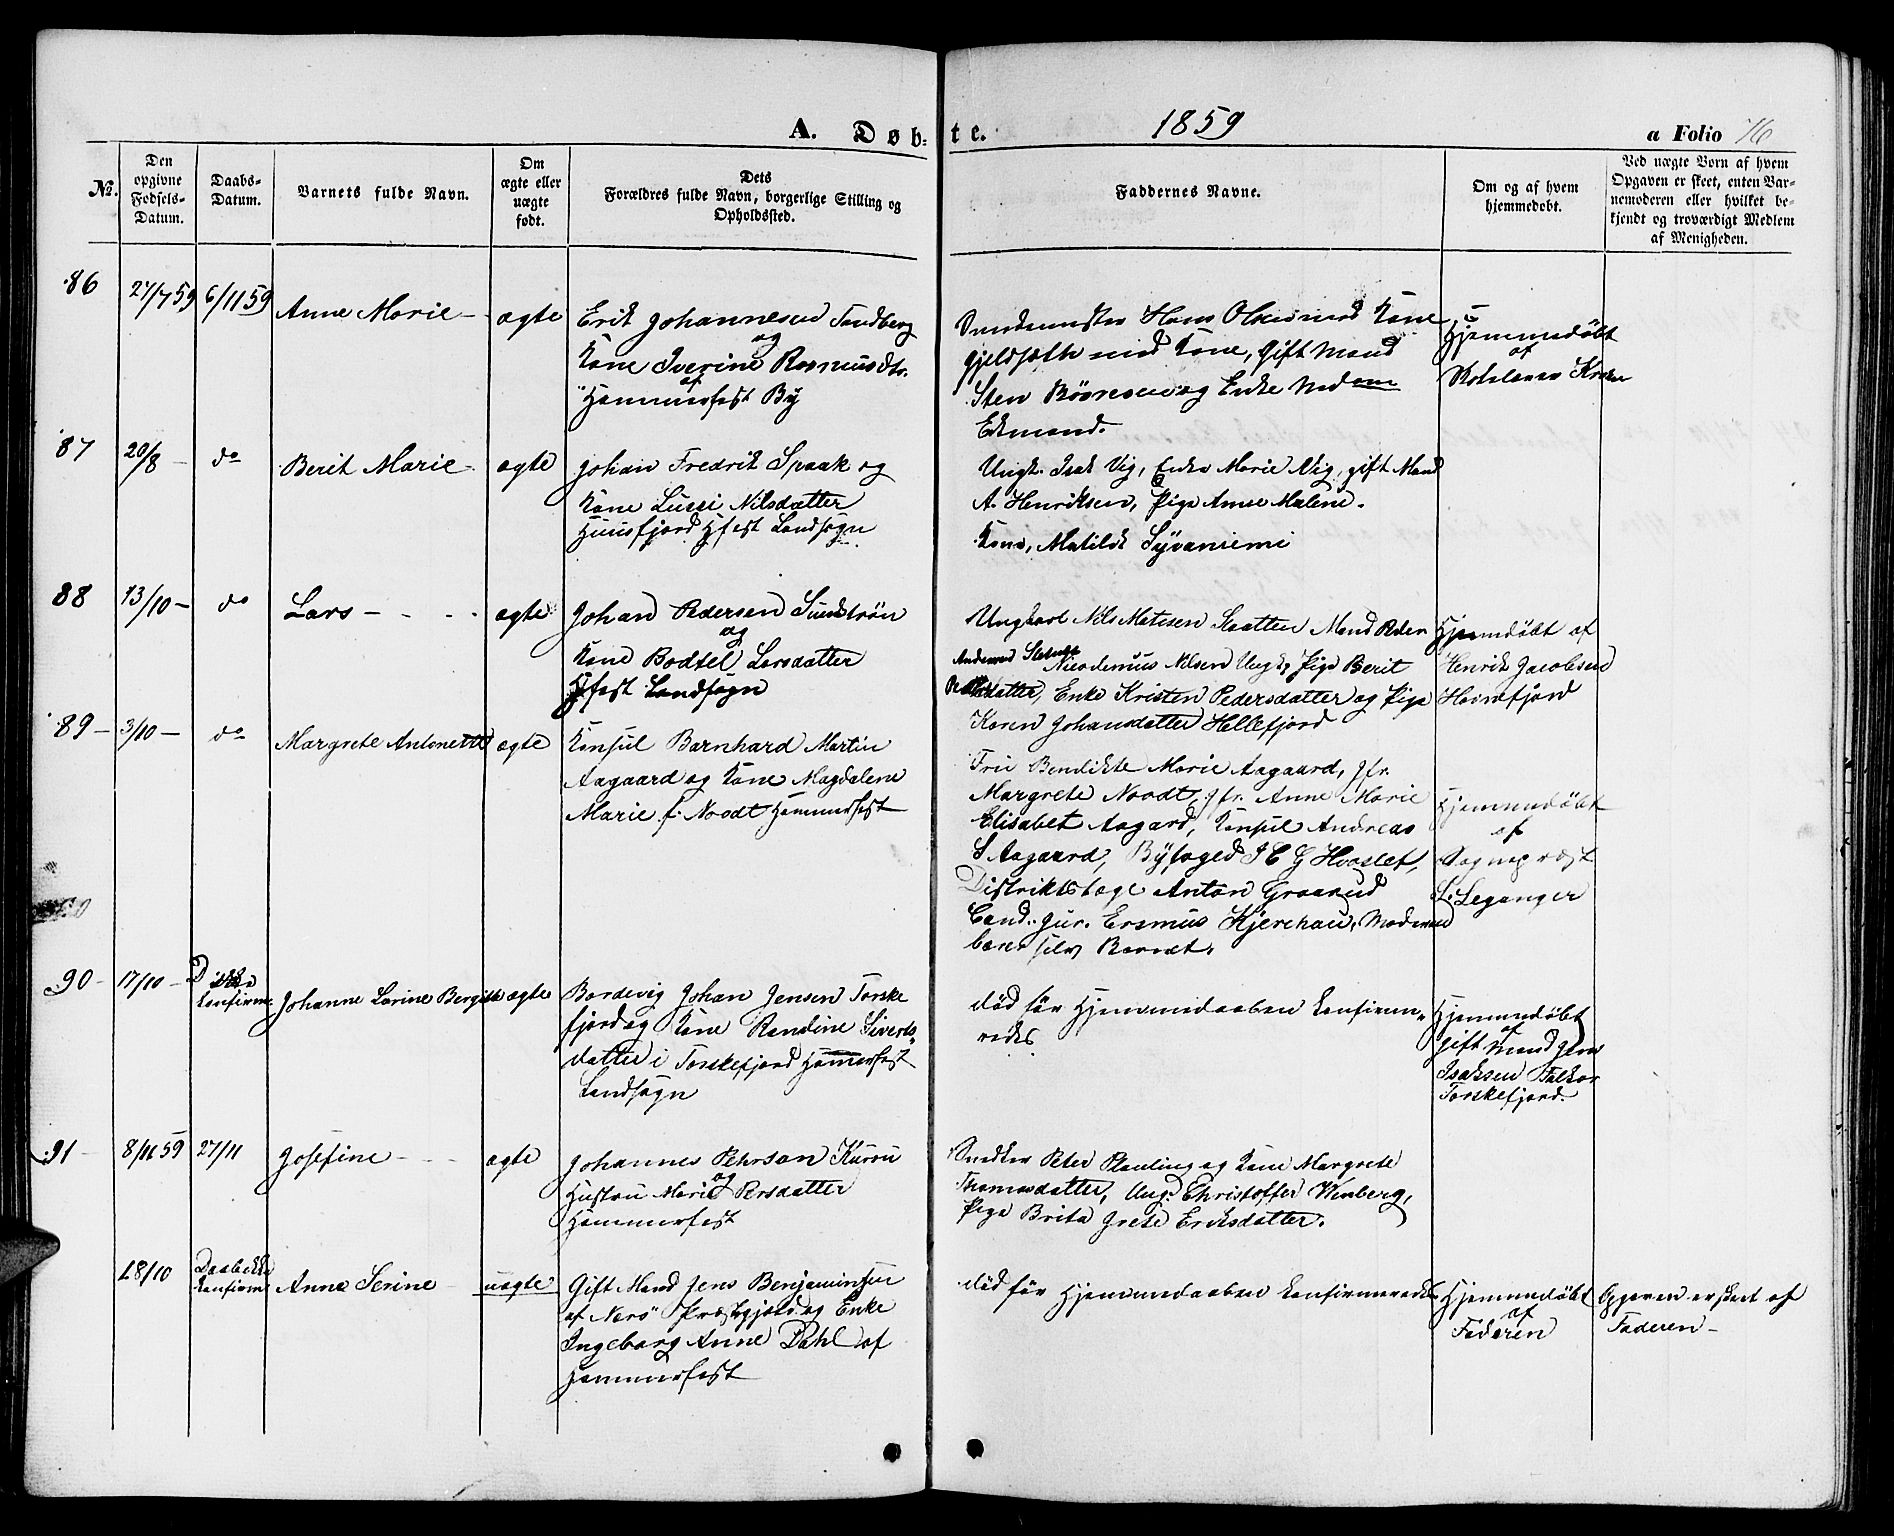 A. Døb-
te.
1859
a Folio 76
No.
Den opgivne Fødsels-Datum.
Daabs-Datum.
Barnets fulde Navn.
Om ægte eller uægte født.
Dets Forældres fulde Navn, borgerlige Stilling og Opholdssted.
Faddernes Navne.
Om og af hvem hjemmedøbt.
Ved uægte Børn af hvem Opgaven er skeet, enten Barnemoderen eller hvilket bekjendt og troværdigt Medlem af Menigheden.
86
27/7 59
6/11 59
Anne Marie
ægte
Erik Johannesen Sandberg
og
Kone Iverine Rasmusdtr.
af
Hammerfest By
Hans Olsen med Kone
med Kone, Gift Mand
Sten Børresen og Enke Madame
Edmand.
Hjemmedøbt
af
87
20/8
do
Berit Marie
ægte
Johan Fredrik Spaak og
Kone Lussi Nilsdatter
Hfest Landsogn
Ungk. Isak Vig, Enke Marie Vig, gift Mand
A. Henriksen, Pige Anne Malene.
Kone, Matilde Syvaniemi
88
13/10
do
Lars
ægte
Johan Pedersen Sundstrøn
og
Kone Bodtel Larsdatter
Hfest Landsogn
Ungkarl Nils Matisen Mand Peder
Andersen
Nicodemus Nilsen Ungk, Pige Berit
Enke Kristen Pedersdatter og Pige
Karen Johansdatter Hellefjord
Hjemdøbt af
Henrik Jacobsen
89
3/10
do
Margrete Antonette
ægte
Konsul Barnhard Martin
Aagaard og Kone Magdalene
Marie f. Noodt Hammerfest
Frue Bendikte Marie Aagaard, Jfr.
Margrete Noodt, Jfr. Anne Marie
Elisabet Aagard, Konsul Andreas
S Aagaard, Byfoged I C G Hvoslef,
Distriktslæge Anton Graarud
Cand. jur. Ersmus Kjerchau, Moderen
bærer selv Barnet.
Hjemmedøbt
af
Sogneprest
L. Leganger
90
17/10
Konfirm.
Johanne Larine Bergitte
ægte
Bordevig Johan Jensen Torske
fjord og Kone Randine Siverts-
datter i Torskefjord Hammerfest
Landsogn
død før Hjemmedaaben Konfirme-
redes
Hjemmedøbt
af
gift Mand Jens
Isaksen
Torskefjord.
91
8/11 59
27/11
Josefine
ægte
Johannes Pehrson Kurru
og
Hustru Marie Persdatter
Hammerfest
Snedker Peter Planting og Kone Margrete
Thomasdatter, Ung. Christoffer Wenberg,
Pige Brita Grete Eriksdatter.
28/10
Konfirm
Anna Serine
uægte
Gift Mand Jens Benjaminsen
af Nærø Præstegjæld og Enke
Ingeborg Anne Dahl af
Hammerfest
død før Hjemmedaaben Konfirmeredes
Hjemmedøbt
af
Faderen
Opgaven er skeet af
Faderen